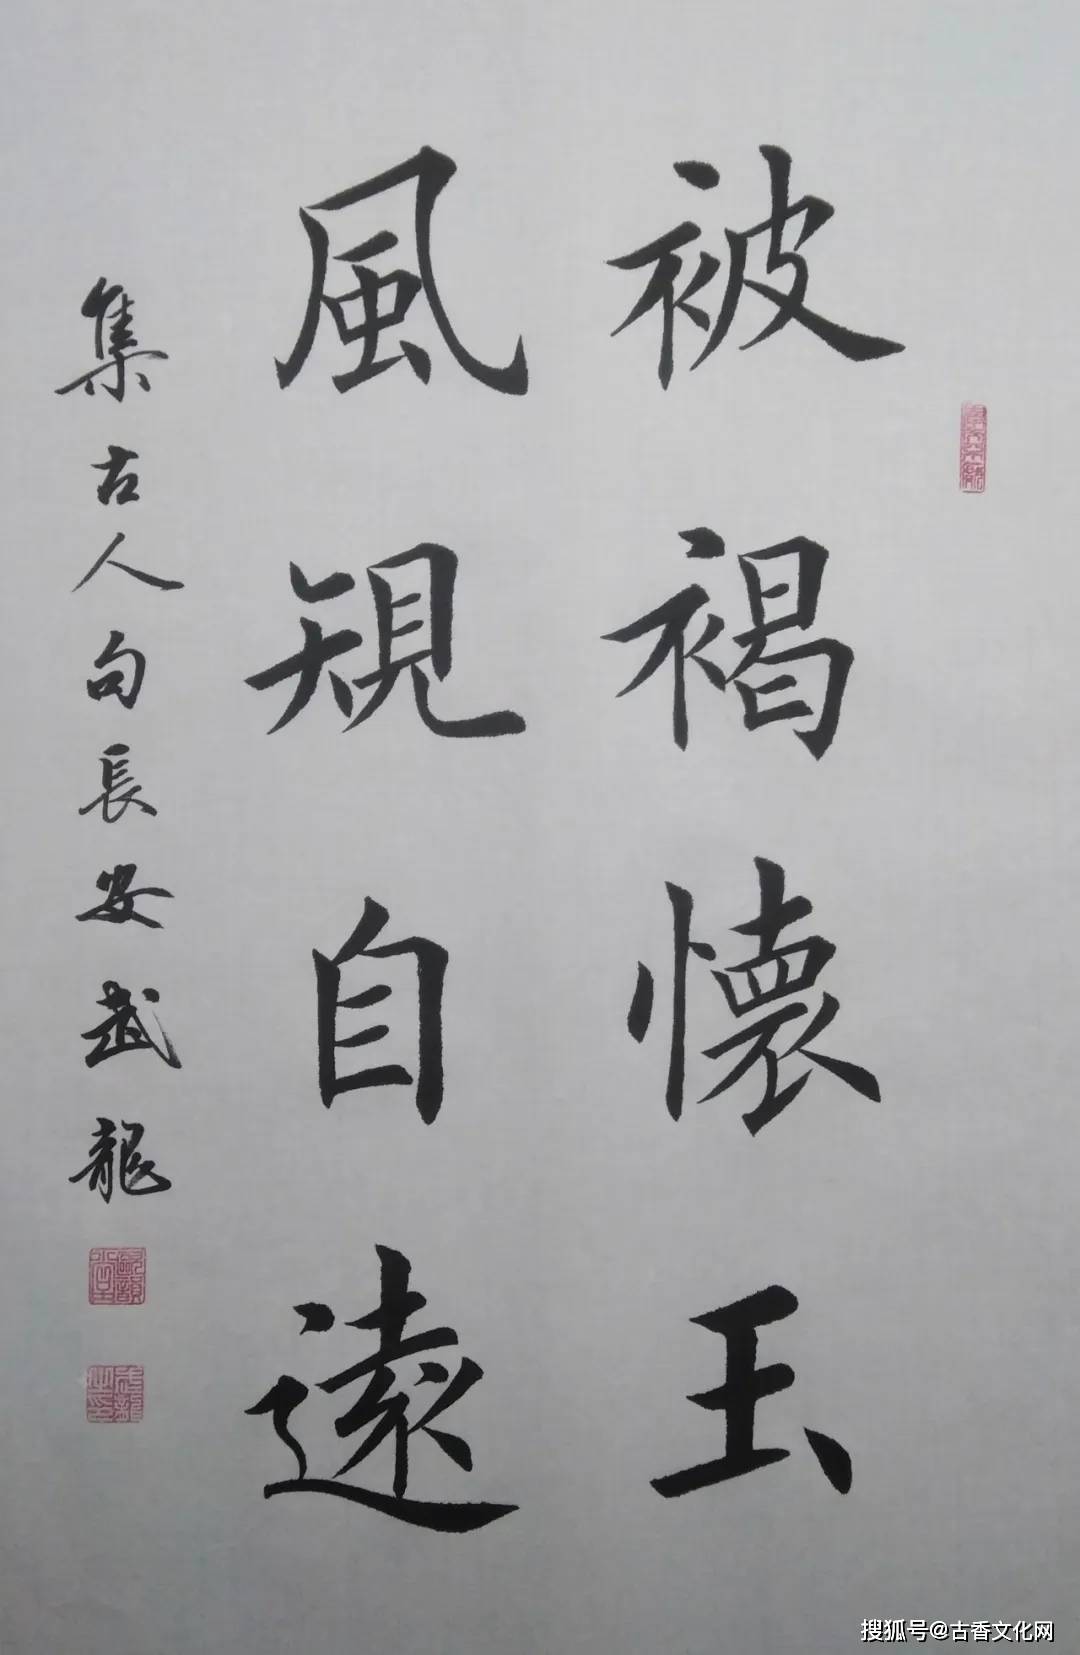 被褐懷玉
風規自遠
集古人句長安武龍
搜狐号@古香文化网